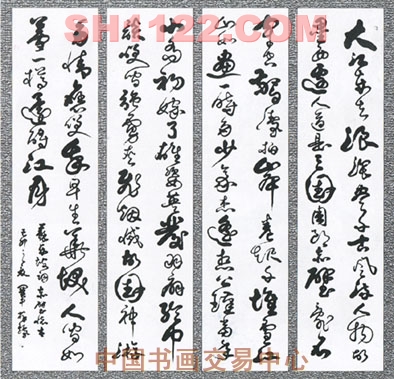 SHJ1122.COM
大江东去浪淘尽千古风流人物故
垒西边人道是三国周郎赤壁乱石
穿空惊涛拍岸卷起千堆雪江
山如画一时多少豪杰遥想公瑾当年
小乔初嫁了雄姿英发羽扇纶巾
谈笑间强虏灰飞烟灭故国神游
多情应笑我早生华发人间如
梦一樽还酹江月
赤壁怀古
己卯之夏
中国书画交易中心